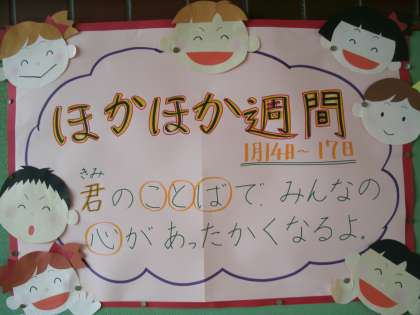 ほかほか週間
1月14日～17日
きみ
君のことばで、みんなの
心があったかくなるよ。